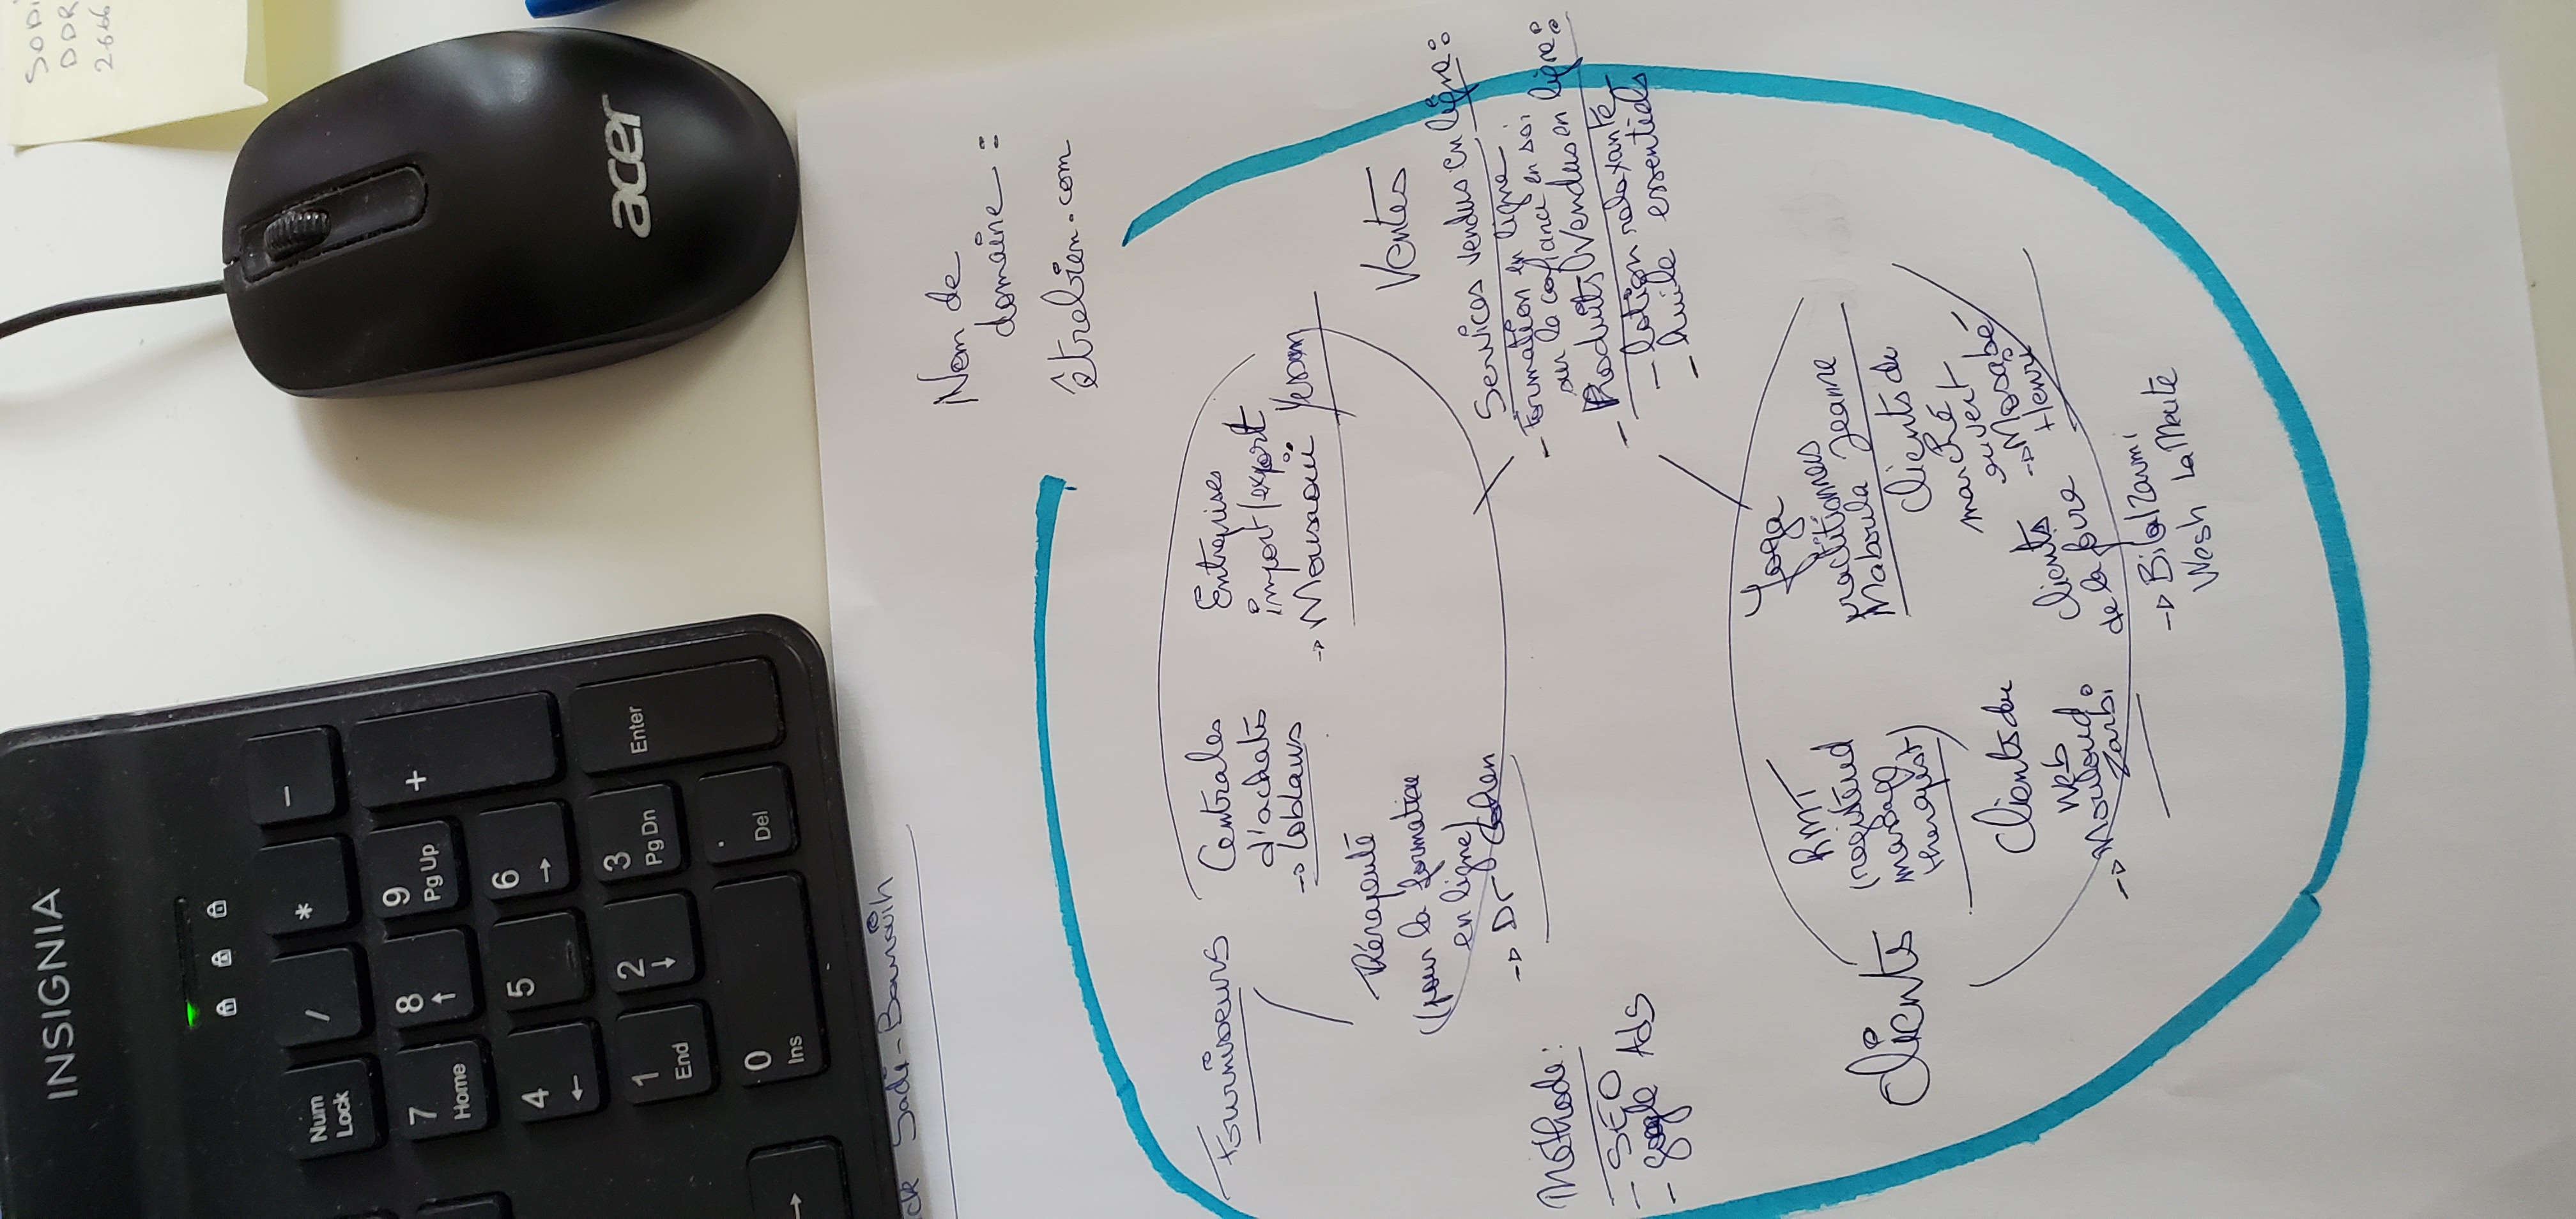 INSIGNIA
Num
Lock
/
*
-
7
Home
8
↑
9
Pg Up
+
4
←
5
6
→
1
End
2
↓
3
Pg Dn
Enter
0
Ins
.
Del
→
acer
SODI
DDR
2666
ck Sadi-
Nom de
domaine :
êtrebien.com
Fournisseurs
Centrales
d'achats
→ Loblaws
Entreprises
import/export
→ Yessam
Thérapeute
(pour la formation
en ligne)
→ Dr Cohen
Ventes
Services vendus en ligne :
- Formation en ligne
sur la confiance en soi
- Produits vendus en ligne :
- lotion relaxante
- huile essentiels
Méthode :
- SEO
- google Ads
Clients
RMT
(registered
massage
therapist)
Yoga
practitionners
Maboula Jeanne
Clients du
marché
ouvert
→ Mosabé
Henri
Clients du
web
→ Mouloud
Zarbi
clients
de la foire
→ Bilal Zarmi
Wesh La Meute